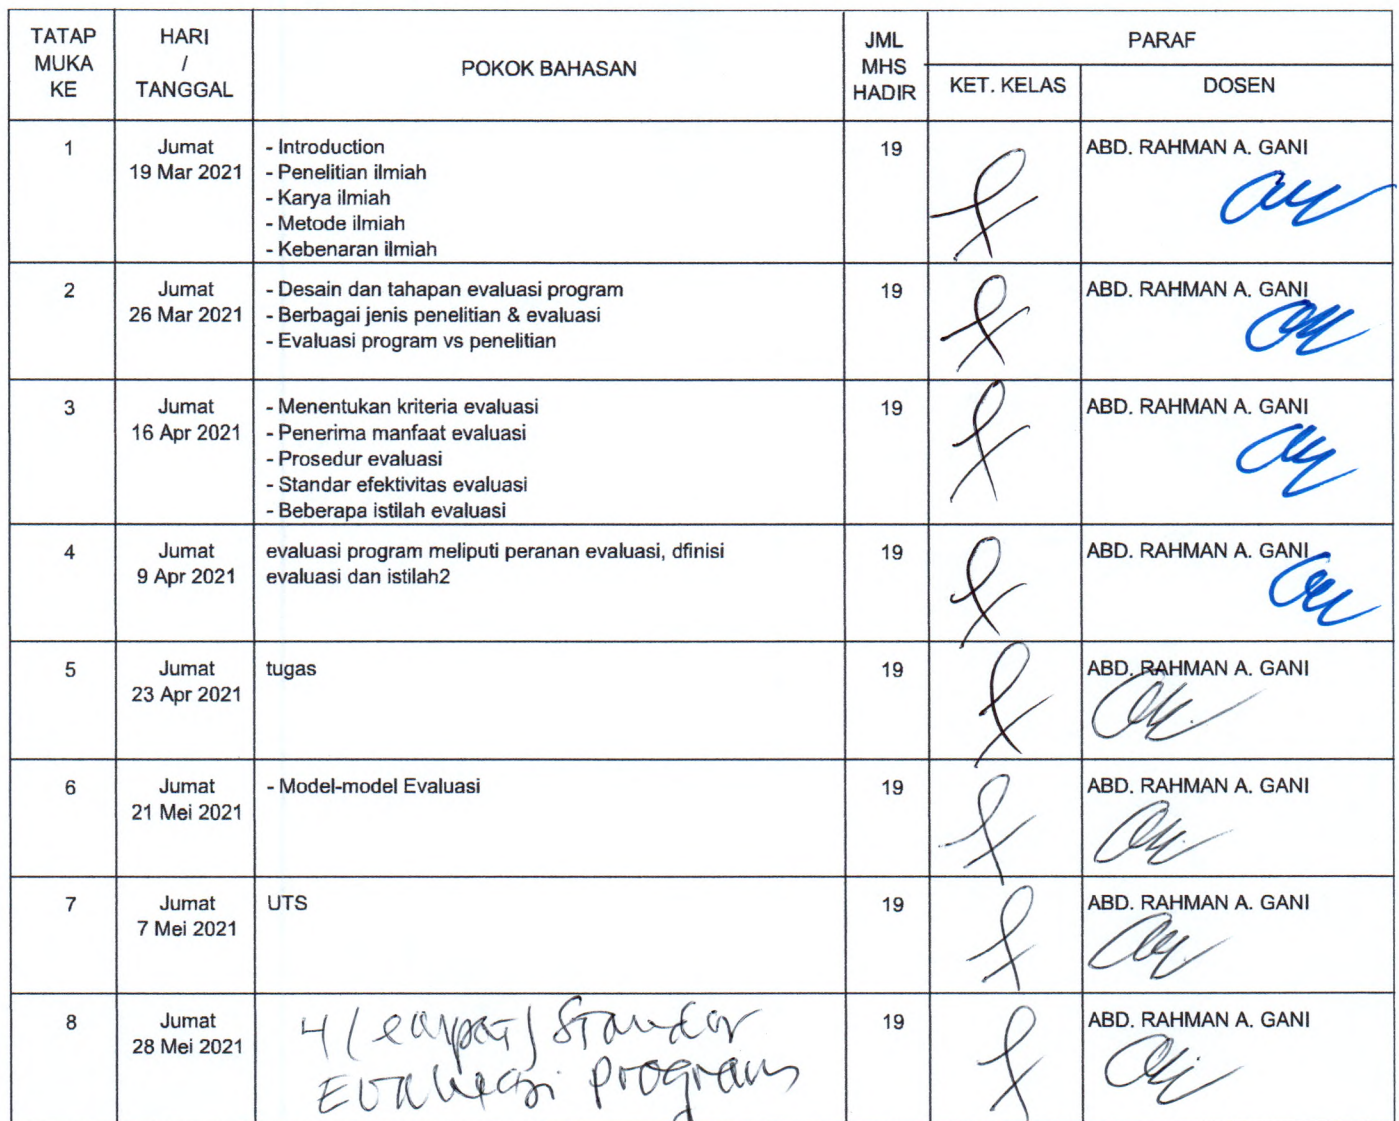 TATAP MUKA KE
HARI / TANGGAL
POKOK BAHASAN
JML MHS HADIR
PARAF
KET. KELAS
DOSEN
1
Jumat
19 Mar 2021
- Introduction
- Penelitian ilmiah
- Karya ilmiah
- Metode ilmiah
- Kebenaran ilmiah
19
ABD. RAHMAN A. GANI
2
Jumat
26 Mar 2021
- Desain dan tahapan evaluasi program
- Berbagai jenis penelitian & evaluasi
- Evaluasi program vs penelitian
19
ABD. RAHMAN A. GANI
3
Jumat
16 Apr 2021
- Menentukan kriteria evaluasi
- Penerima manfaat evaluasi
- Prosedur evaluasi
- Standar efektivitas evaluasi
- Beberapa istilah evaluasi
19
ABD. RAHMAN A. GANI
4
Jumat
9 Apr 2021
evaluasi program meliputi peranan evaluasi, dfinisi
evaluasi dan istilah2
19
ABD. RAHMAN A. GANI
5
Jumat
23 Apr 2021
tugas
19
ABD. RAHMAN A. GANI
6
Jumat
21 Mei 2021
- Model-model Evaluasi
19
ABD. RAHMAN A. GANI
7
Jumat
7 Mei 2021
UTS
19
ABD. RAHMAN A. GANI
8
Jumat
28 Mei 2021
4 (empat) Standar
Evaluasi program
19
ABD. RAHMAN A. GANI